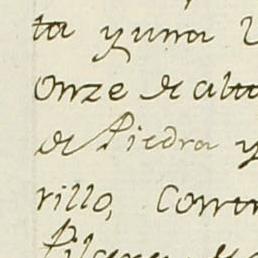 ta y una
Onze de alta
de Piedra y
rillo, Contr